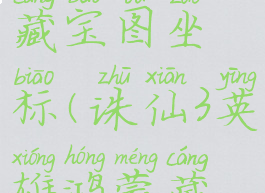 藏宝图坐
biāo zhū xiān yīng
标(诛仙3英
xióng hóng méng cáng
雄鸿蒙藏